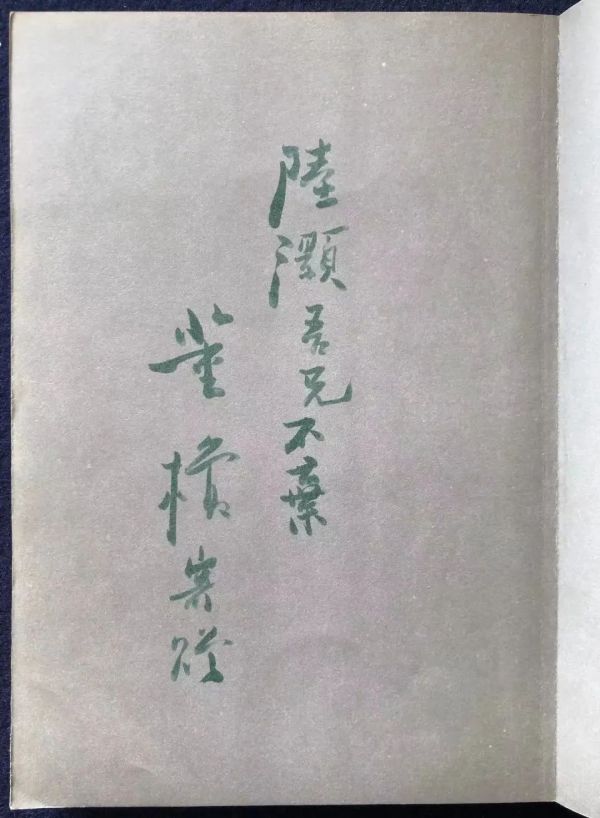 陸灝吾兄不棄
董橋寄贈